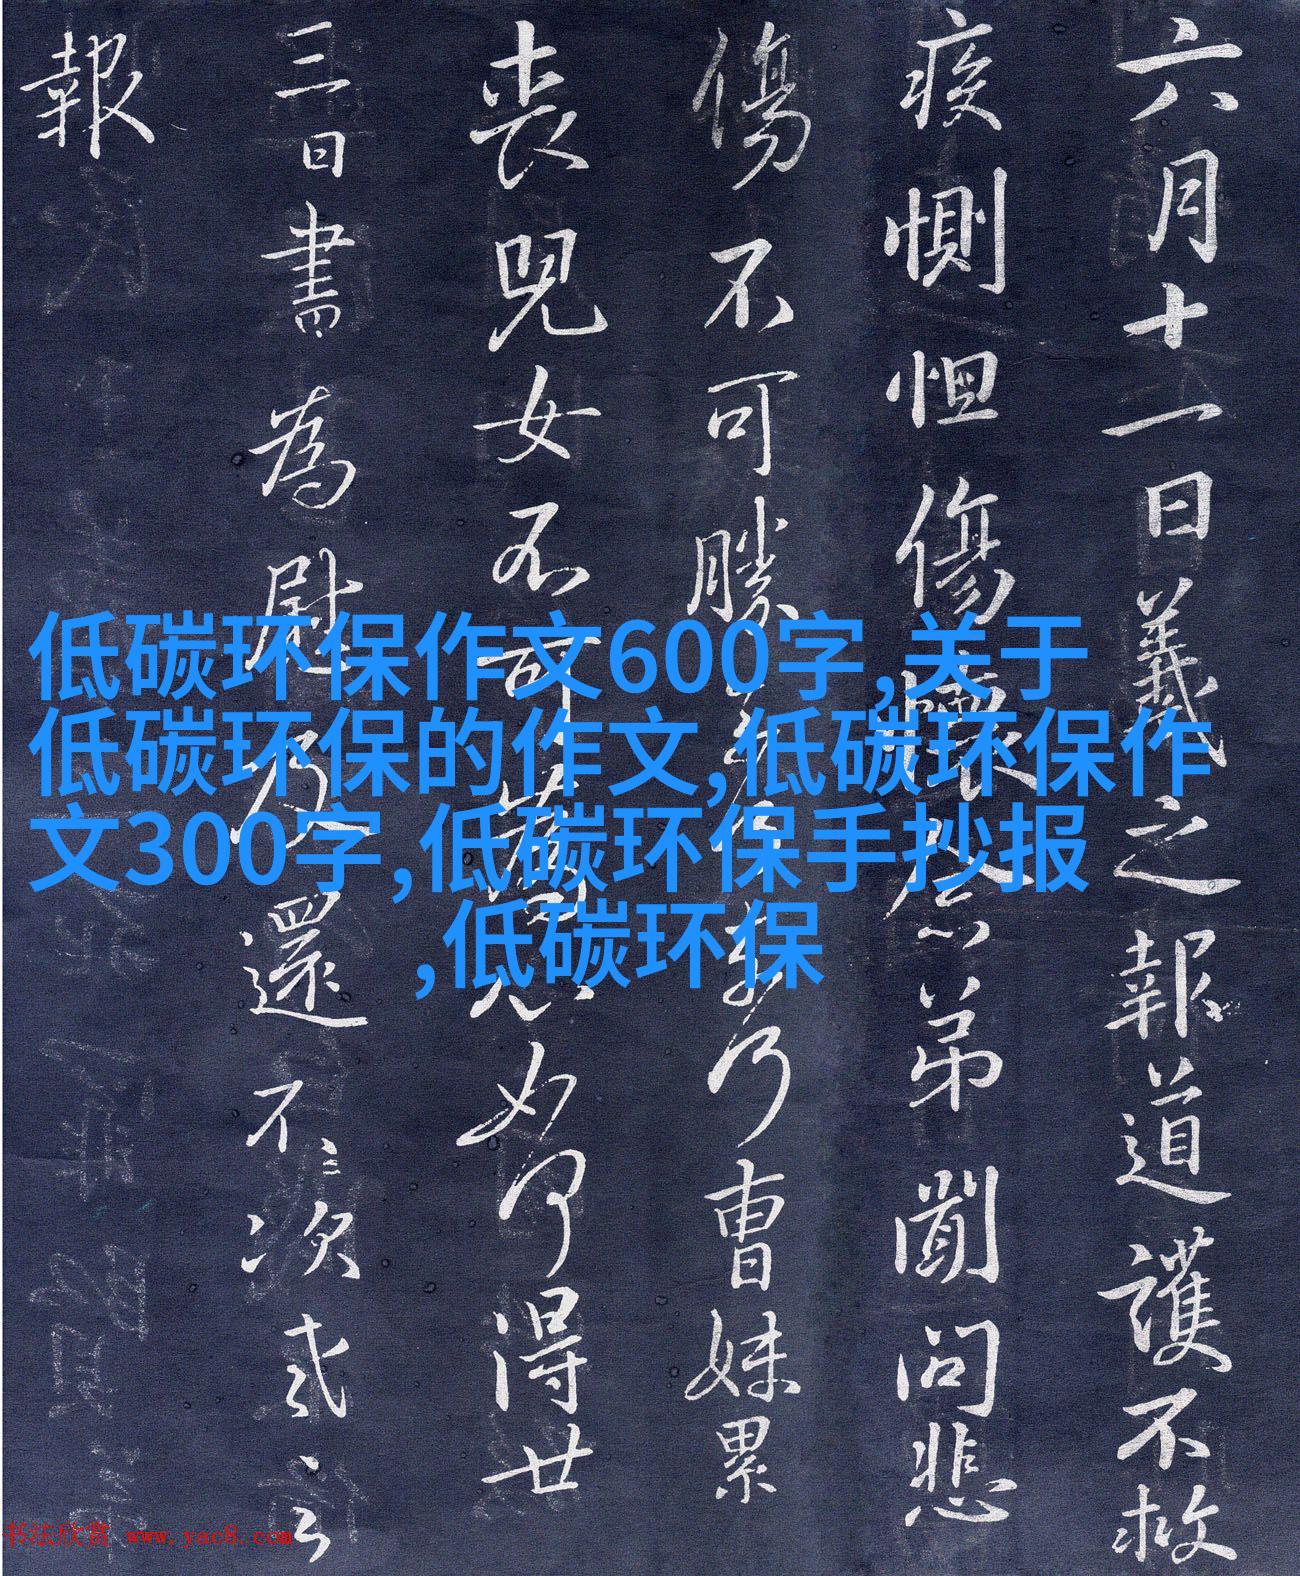 六月十一日羲之報道護不救
疾惻怛傷懷念弟聞問悲
傷不可勝奈何奈何乃曹妹累
喪兒女不可為心如何得廿
三日書為慰乃還不不次羲之
報
低碳环保作文600字,关于
低碳环保的作文,低碳环保作
文300字,低碳环保手抄报
,低碳环保
书法欣赏 www.yac8.com